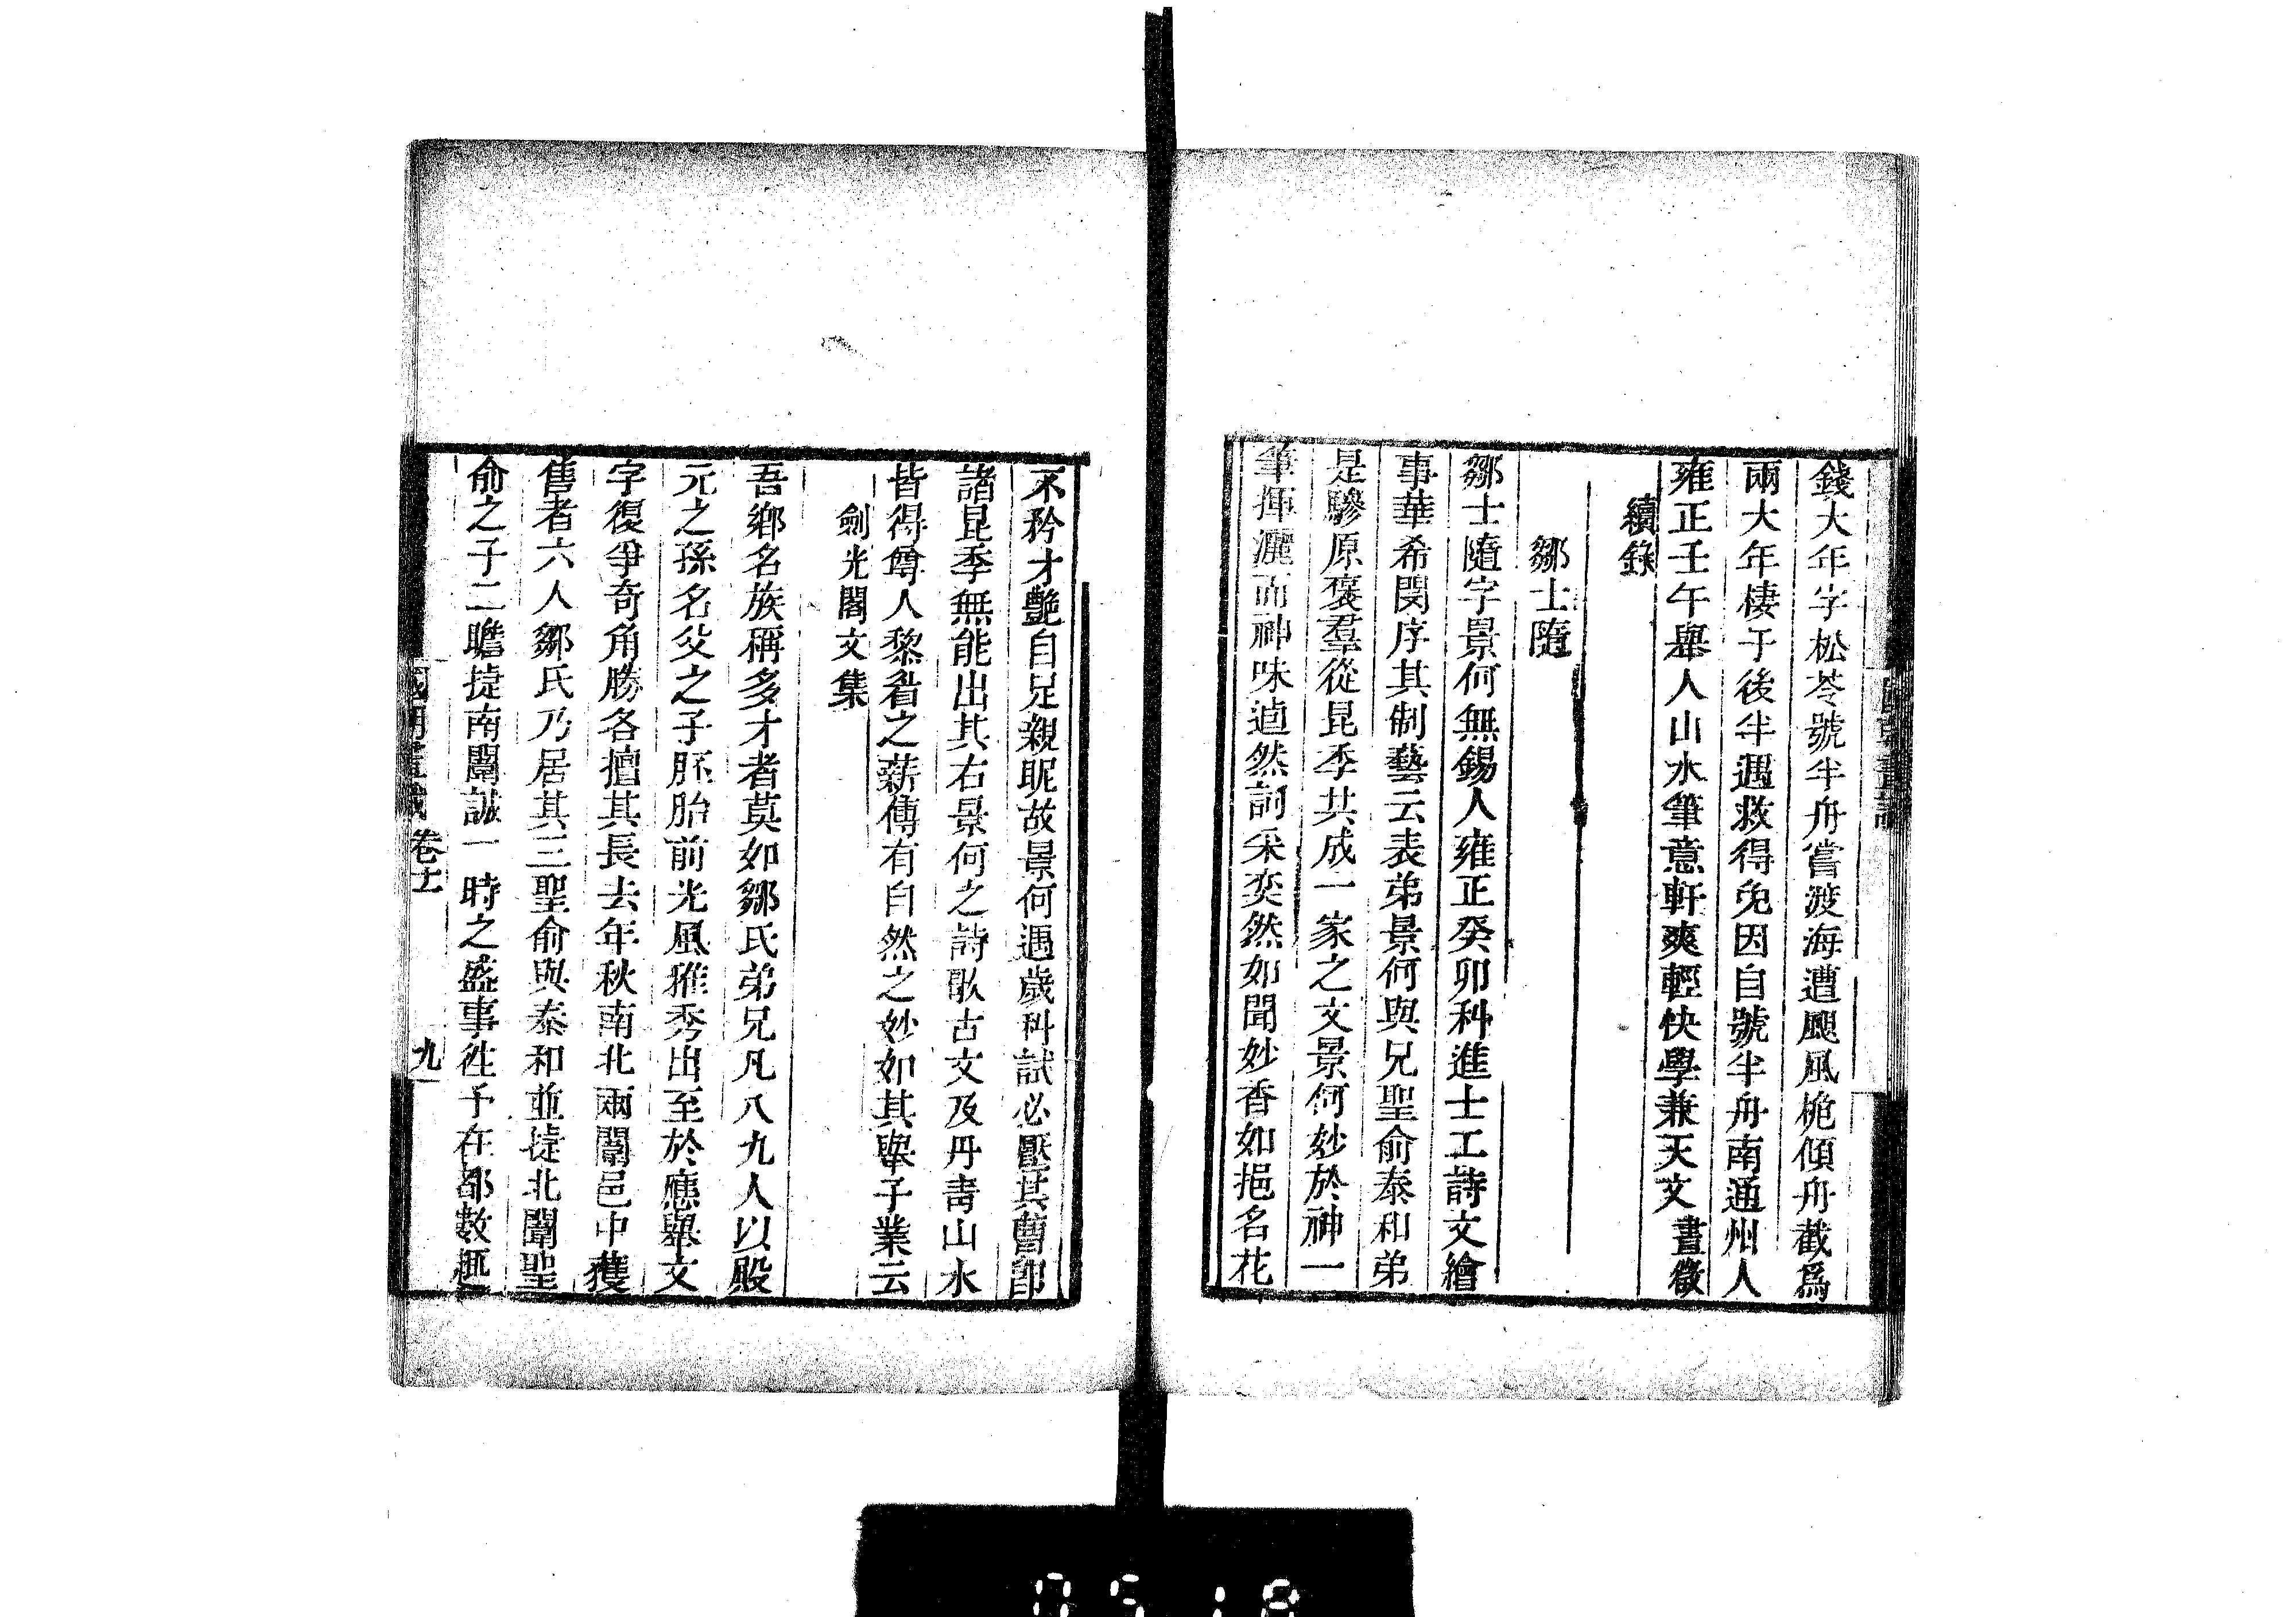 錢大年字松苓號半舟嘗渡海遭颶風桅傾舟截爲
兩大年棲于後半遇救得免因自號半舟南通州人
雍正壬午舉人山水筆意軒爽輕快學兼天文畫徵
續錄
鄒士隨
鄒士隨字景何無錫人雍正癸卯科進士工詩文繪
事華希閔序其制藝云表弟景何與兄聖俞泰和弟
是驂原褒羣從昆季共成一家之文景何妙於神一
筆揮灑而神味逌然詞采奕然如聞妙香如挹名花
不矜才艷自足親昵故景何遇歲科試必壓其曹卽
諸昆季無能出其右景何之詩歌古文及丹靑山水
皆得鱒人黎眷之薪傳有自然之妙如其舉子業云
劍光閣文集
吾鄕名族稱多才者莫如鄒氏弟兄凡八九人以殿
元之孫名父之子胚胎前光風雅秀出至於應舉文
字復爭奇角勝各擅其長去年秋南北兩闈邑中獲
售者六人鄒氏乃居其三聖俞與泰和並捷北闈聖
俞之子二瞻捷南闈誠一時之盛事徃予在都數
卷十
九